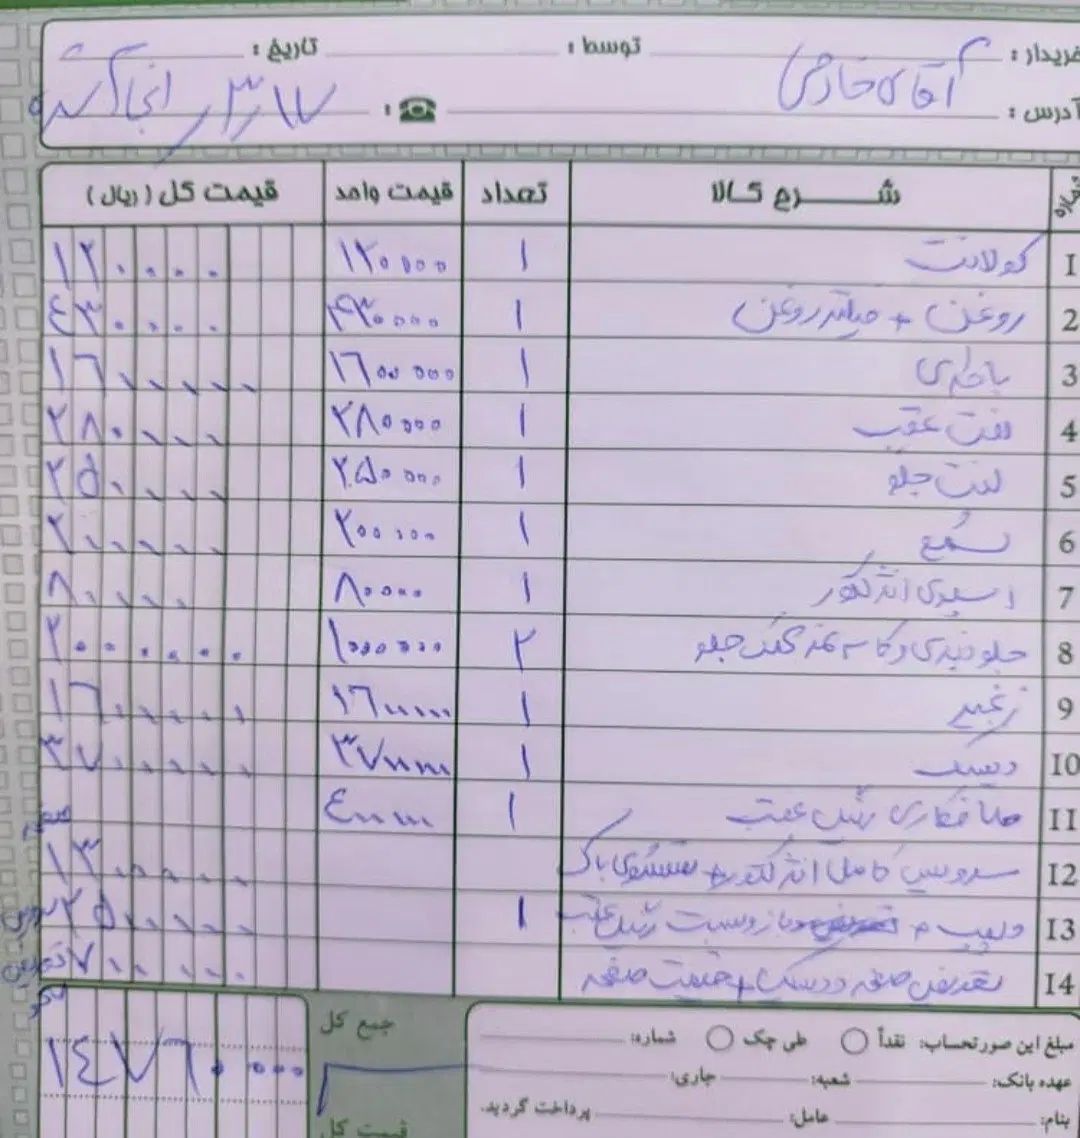 خریدار: آقای خادمی توسط: تاریخ:
آدرس: ☎: ۳/۱۷ انجام شده
شماره شــرح کــالا تعداد قیمت واحد قیمت کل (ریال)
1 کولانت ۱ ۱۲۰۰۰۰ ۱۲۰۰۰۰
2 روغن + فیلتر روغن ۱ ۴۳۰۰۰۰ ۴۳۰۰۰۰
3 باطری ۱ ۱۶۰۰۰۰۰ ۱۶۰۰۰۰۰
4 لنت عقب ۱ ۲۸۰۰۰۰ ۲۸۰۰۰۰
5 لنت جلو ۱ ۲۵۰۰۰۰ ۲۵۰۰۰۰
6 شمع ۱ ۲۰۰۰۰۰ ۲۰۰۰۰۰
7 اسپری انژکتور ۱ ۸۰۰۰۰ ۸۰۰۰۰
8 جلوبندی و کاسه نمد جلو ۲ ۱۰۰۰۰۰۰ ۲۰۰۰۰۰۰
9 ۱ ۱۶۰۰۰۰۰ ۱۶۰۰۰۰۰
10 دیسک ۱ ۳۷۰۰۰۰۰ ۳۷۰۰۰۰۰
11 صافکاری عقب ۱ ۴۰۰۰۰۰
12 سرویس کامل انژکتور + شستشوی باک ۱۳۰۰۰۰۰
13 و بازوبست عقب ۱ ۲۵۰۰۰۰۰
14 تعویض صفحه و دیسک + قیمت صفحه ۷۰۰۰۰۰
جمع کل ۱۴۷۶۰۰۰۰
قیمت کل
مبلغ این صورتحساب: نقداً طی چک شماره:
عهده بانک: شعبه: جاری:
بنام: عامل: پرداخت گردید.